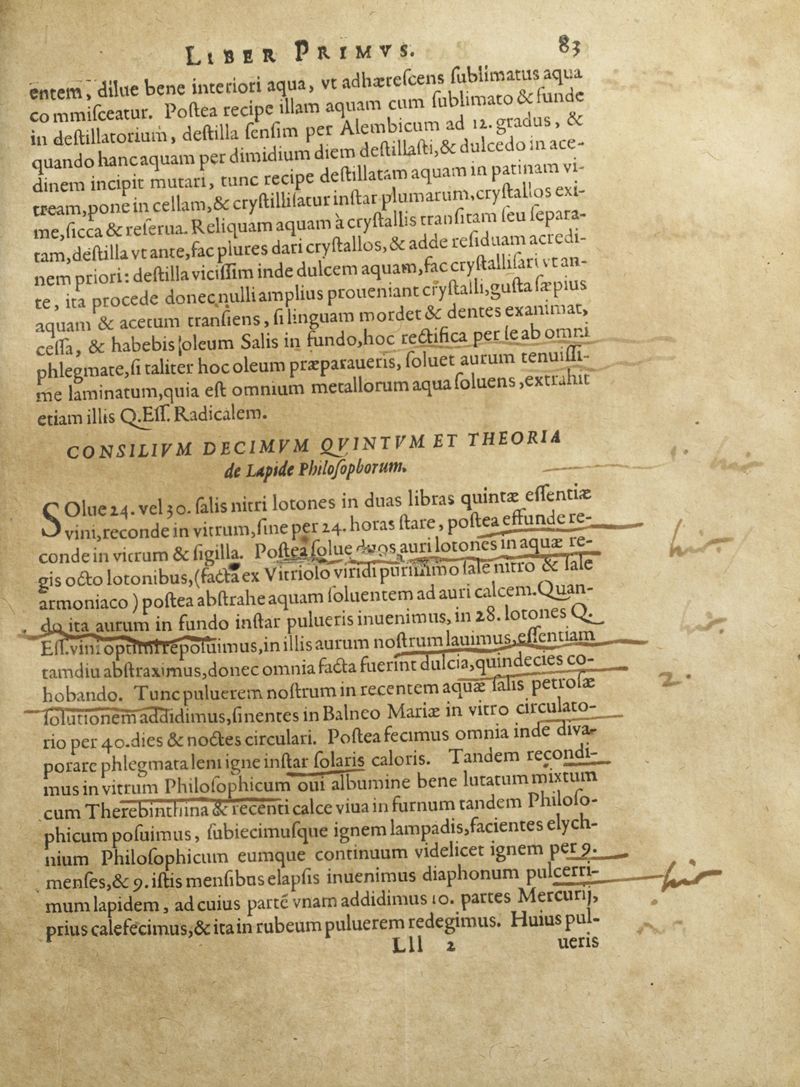 LIBER PRIMVS. 83
entem, dilue bene interiori aqua, vt adhærescens sublimatus aqua
commisceatur. Postea recipe illam aquam cum sublimato & funde
in destillatorium, destilla sensim per Alembicum ad 12. gradus, &
quando hanc aquam per dimidium diem destillasti, & dulcedo in ace-
dinem incipit mutari, tunc recipe destillatam aquam in patinam vi-
tream, pone in cellam, & crystillisatur instar plumarum, crystallos exi-
me, sicca & reserua. Reliquam aquam à crystallis transitam seu separa-
tam, destilla vt ante, fac plures dari crystallos, & adde residuam acredi-
nem priori: destilla vicissim inde dulcem aquam, fac crystallisari vt an-
te, ita procede donec nulli amplius proueniant crystalli, gusta sæpius
aquam & acetum transiens, si linguam mordet & dentes exanimat,
cessa, & habebis oleum Salis in fundo, hoc rectifica per se ab omni
phlegmate, si taliter hoc oleum præparaueris, soluet aurum tenuissi-
me laminatum, quia est omnium metallorum aqua soluens, extrahit
etiam illis Q. Ess. Radicalem.
CONSILIVM DECIMVM QVINTVM ET THEORIA
de Lapide Philosophorum.
SOlue 24. vel 30. salis nitri lotones in duas libras quintæ essentiæ
vini, reconde in vitrum, sine per 24. horas stare, postea effunde re-
conde in vitrum & sigilla. Postea solue duos auri lotones in aquæ re-
gis octo lotonibus, (facta ex Vitriolo viridi purissimo sale nitro & sale
armoniaco) postea abstrahe aquam soluentem ad auri calcem. Quan-
do ita aurum in fundo instar pulueris inuenimus, in 28. lotones Q.
Ess. vini optimi reposuimus, in illis aurum nostrum lauimus, essentiam
tamdiu abstraximus, donec omnia facta fuerint dulcia, quindecies co-
hobando. Tunc puluerem nostrum in recentem aquæ salis petrosæ
solutionem addidimus, sinentes in Balneo Mariæ in vitro circulato-
rio per 40. dies & noctes circulari. Postea fecimus omnia inde diva-
porare phlegmata leni igne instar solaris caloris. Tandem recondi-
mus in vitrum Philosophicum oui albumine bene lutatum mixtum
cum Therebinthina & recenti calce viua in furnum tandem Philoso-
phicum posuimus, subiecimusque ignem lampadis, facientes elych-
nium Philosophicum eumque continuum videlicet ignem per 9.
menses, & 9. istis mensibus elapsis inuenimus diaphonum pulcerri-
mum lapidem, ad cuius partē vnam addidimus 10. partes Mercurij,
prius calefecimus, & ita in rubeum puluerem redegimus. Huius pul-
Lll 2 ueris